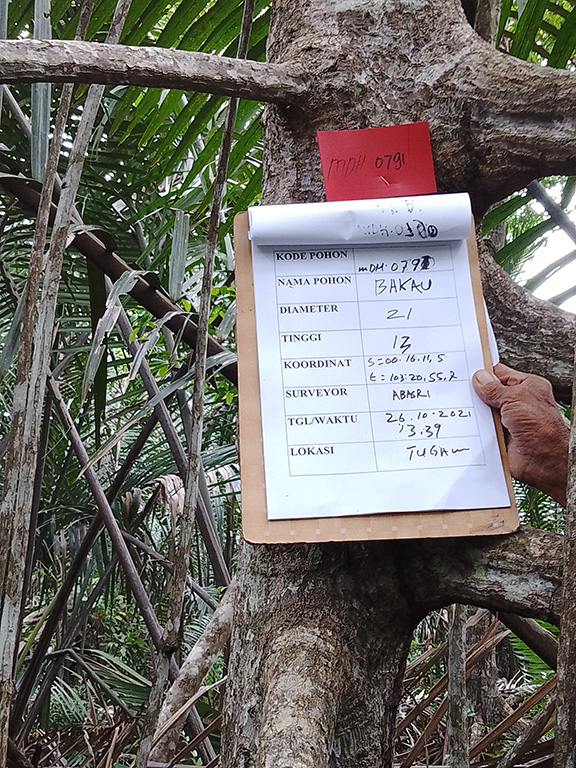 MDH 0791
KODE POHON MDH.0791
NAMA POHON BAKAU
DIAMETER 21
TINGGI 13
KOORDINAT S=00.16.11,5
E=103.20.55,7
SURVEYOR ABASRI
TGL/WAKTU 26.10.2021
13.39
LOKASI TUGAM